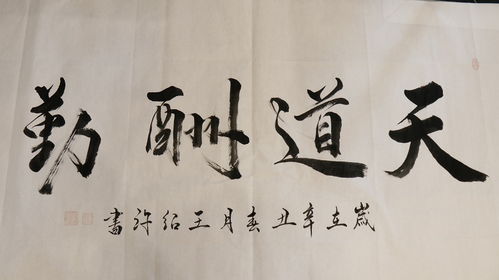 天道酬勤
歲在辛丑春月王紹許書